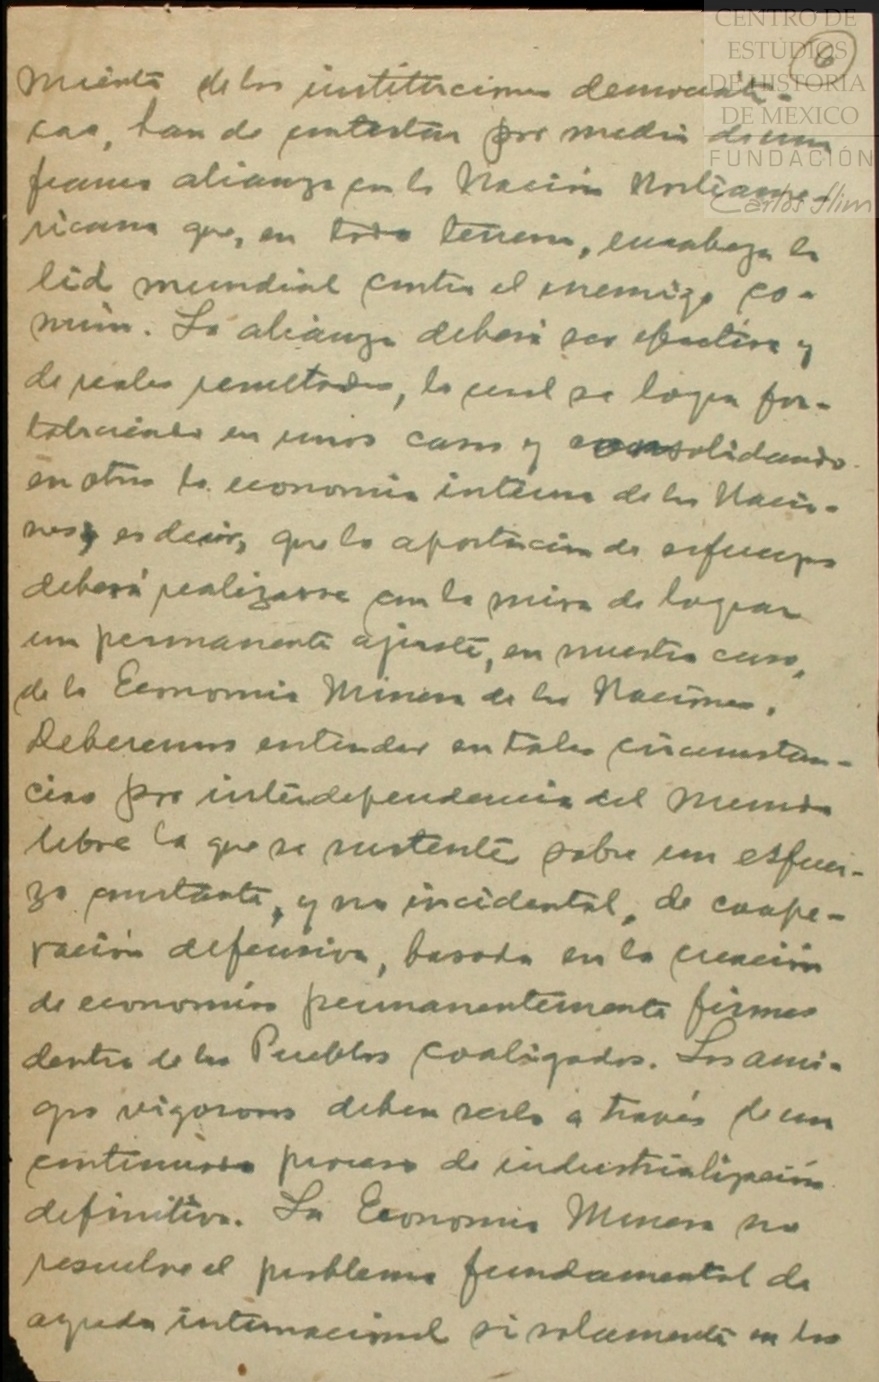 CENTRO DE
ESTUDIOS
DE HISTORIA
DE MEXICO
FUNDACIÓN
Carlos Slim
6
miento de las instituciones democráti-
cas, han de contestar por medio de una
franca alianza con la Nación Norteame-
ricana que, en todo terreno, encabeza la
lid mundial contra el enemigo co-
mún. La alianza deberá ser efectiva y
de reales resultados, lo cual se logra for-
taleciendo en unos casos y consolidando
en otros la economía interna de las Nacio-
nes, es decir, que la aportación de esfuerzo
deberá realizarse con la mira de lograr
un permanente ajuste, en nuestro caso,
de la Economía Minera de las Naciones.
Deberemos entender en tales circunstan-
cias por interdependencia del Mundo
libre la que se sustente sobre un esfuer-
zo constante, y no incidental, de coope-
ración defensiva, basada en la creación
de economías permanentemente firmes
dentro de los Pueblos coaligados. Los ami-
gos vigorosos deben serlo a través de un
continuado proceso de industrialización
definitiva. La Economía Minera no
resuelve el problema fundamental de
ayuda internacional si solamente en los